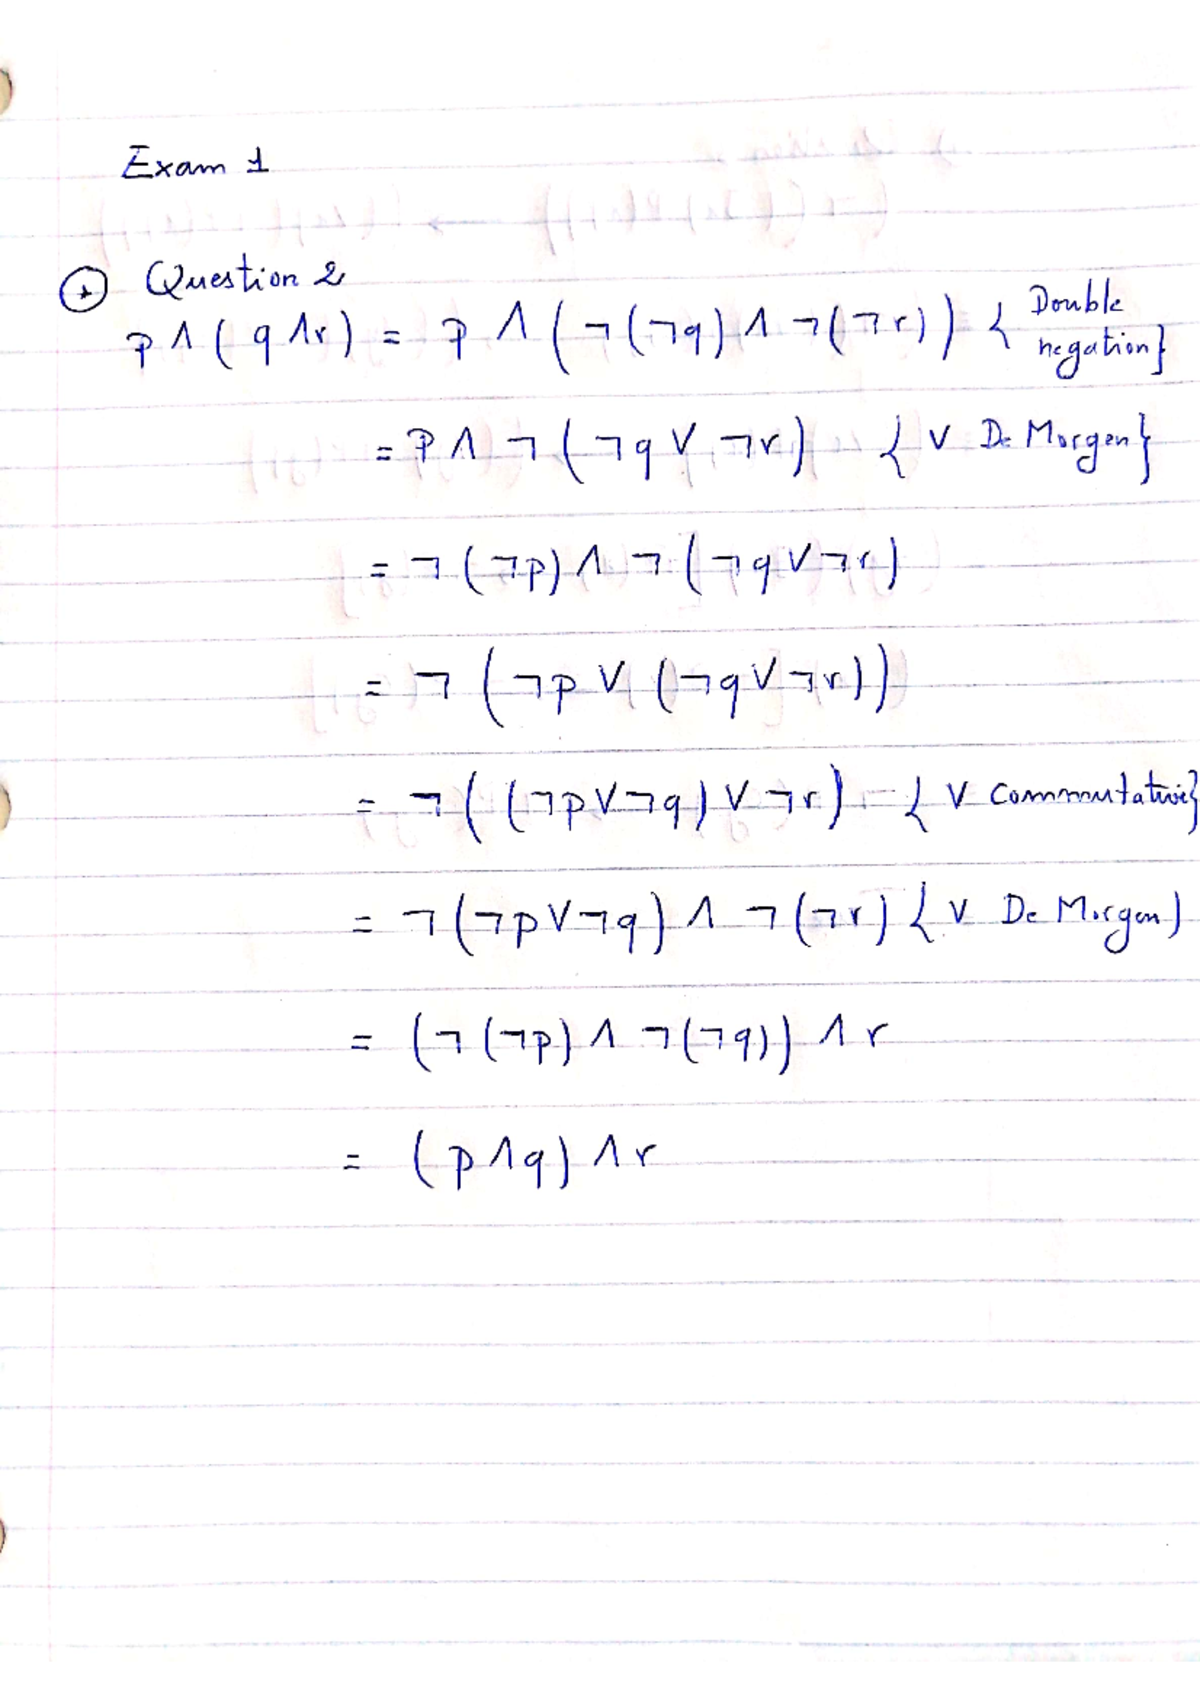 Exam 1
Question 2
p ∧ ( q ∧ r ) = p ∧ ( ¬ ( ¬q ) ∧ ¬ ( ¬ r ) ) { Double negation }
= p ∧ ¬ ( ¬q ∨ ¬r ) { ∨ De Morgen }
= ¬ ( ¬p ) ∧ ¬ ( ¬q ∨ ¬r )
= ¬ ( ¬p ∨ ( ¬q ∨ ¬r ) )
= ¬ ( ( ¬p ∨ ¬q ) ∨ ¬r ) { ∨ Commutative }
= ¬ ( ¬p ∨ ¬q ) ∧ ¬ ( ¬r ) { ∨ De Morgen )
= ( ¬ ( ¬p ) ∧ ¬ ( ¬q ) ) ∧ r
= ( p ∧ q ) ∧ r